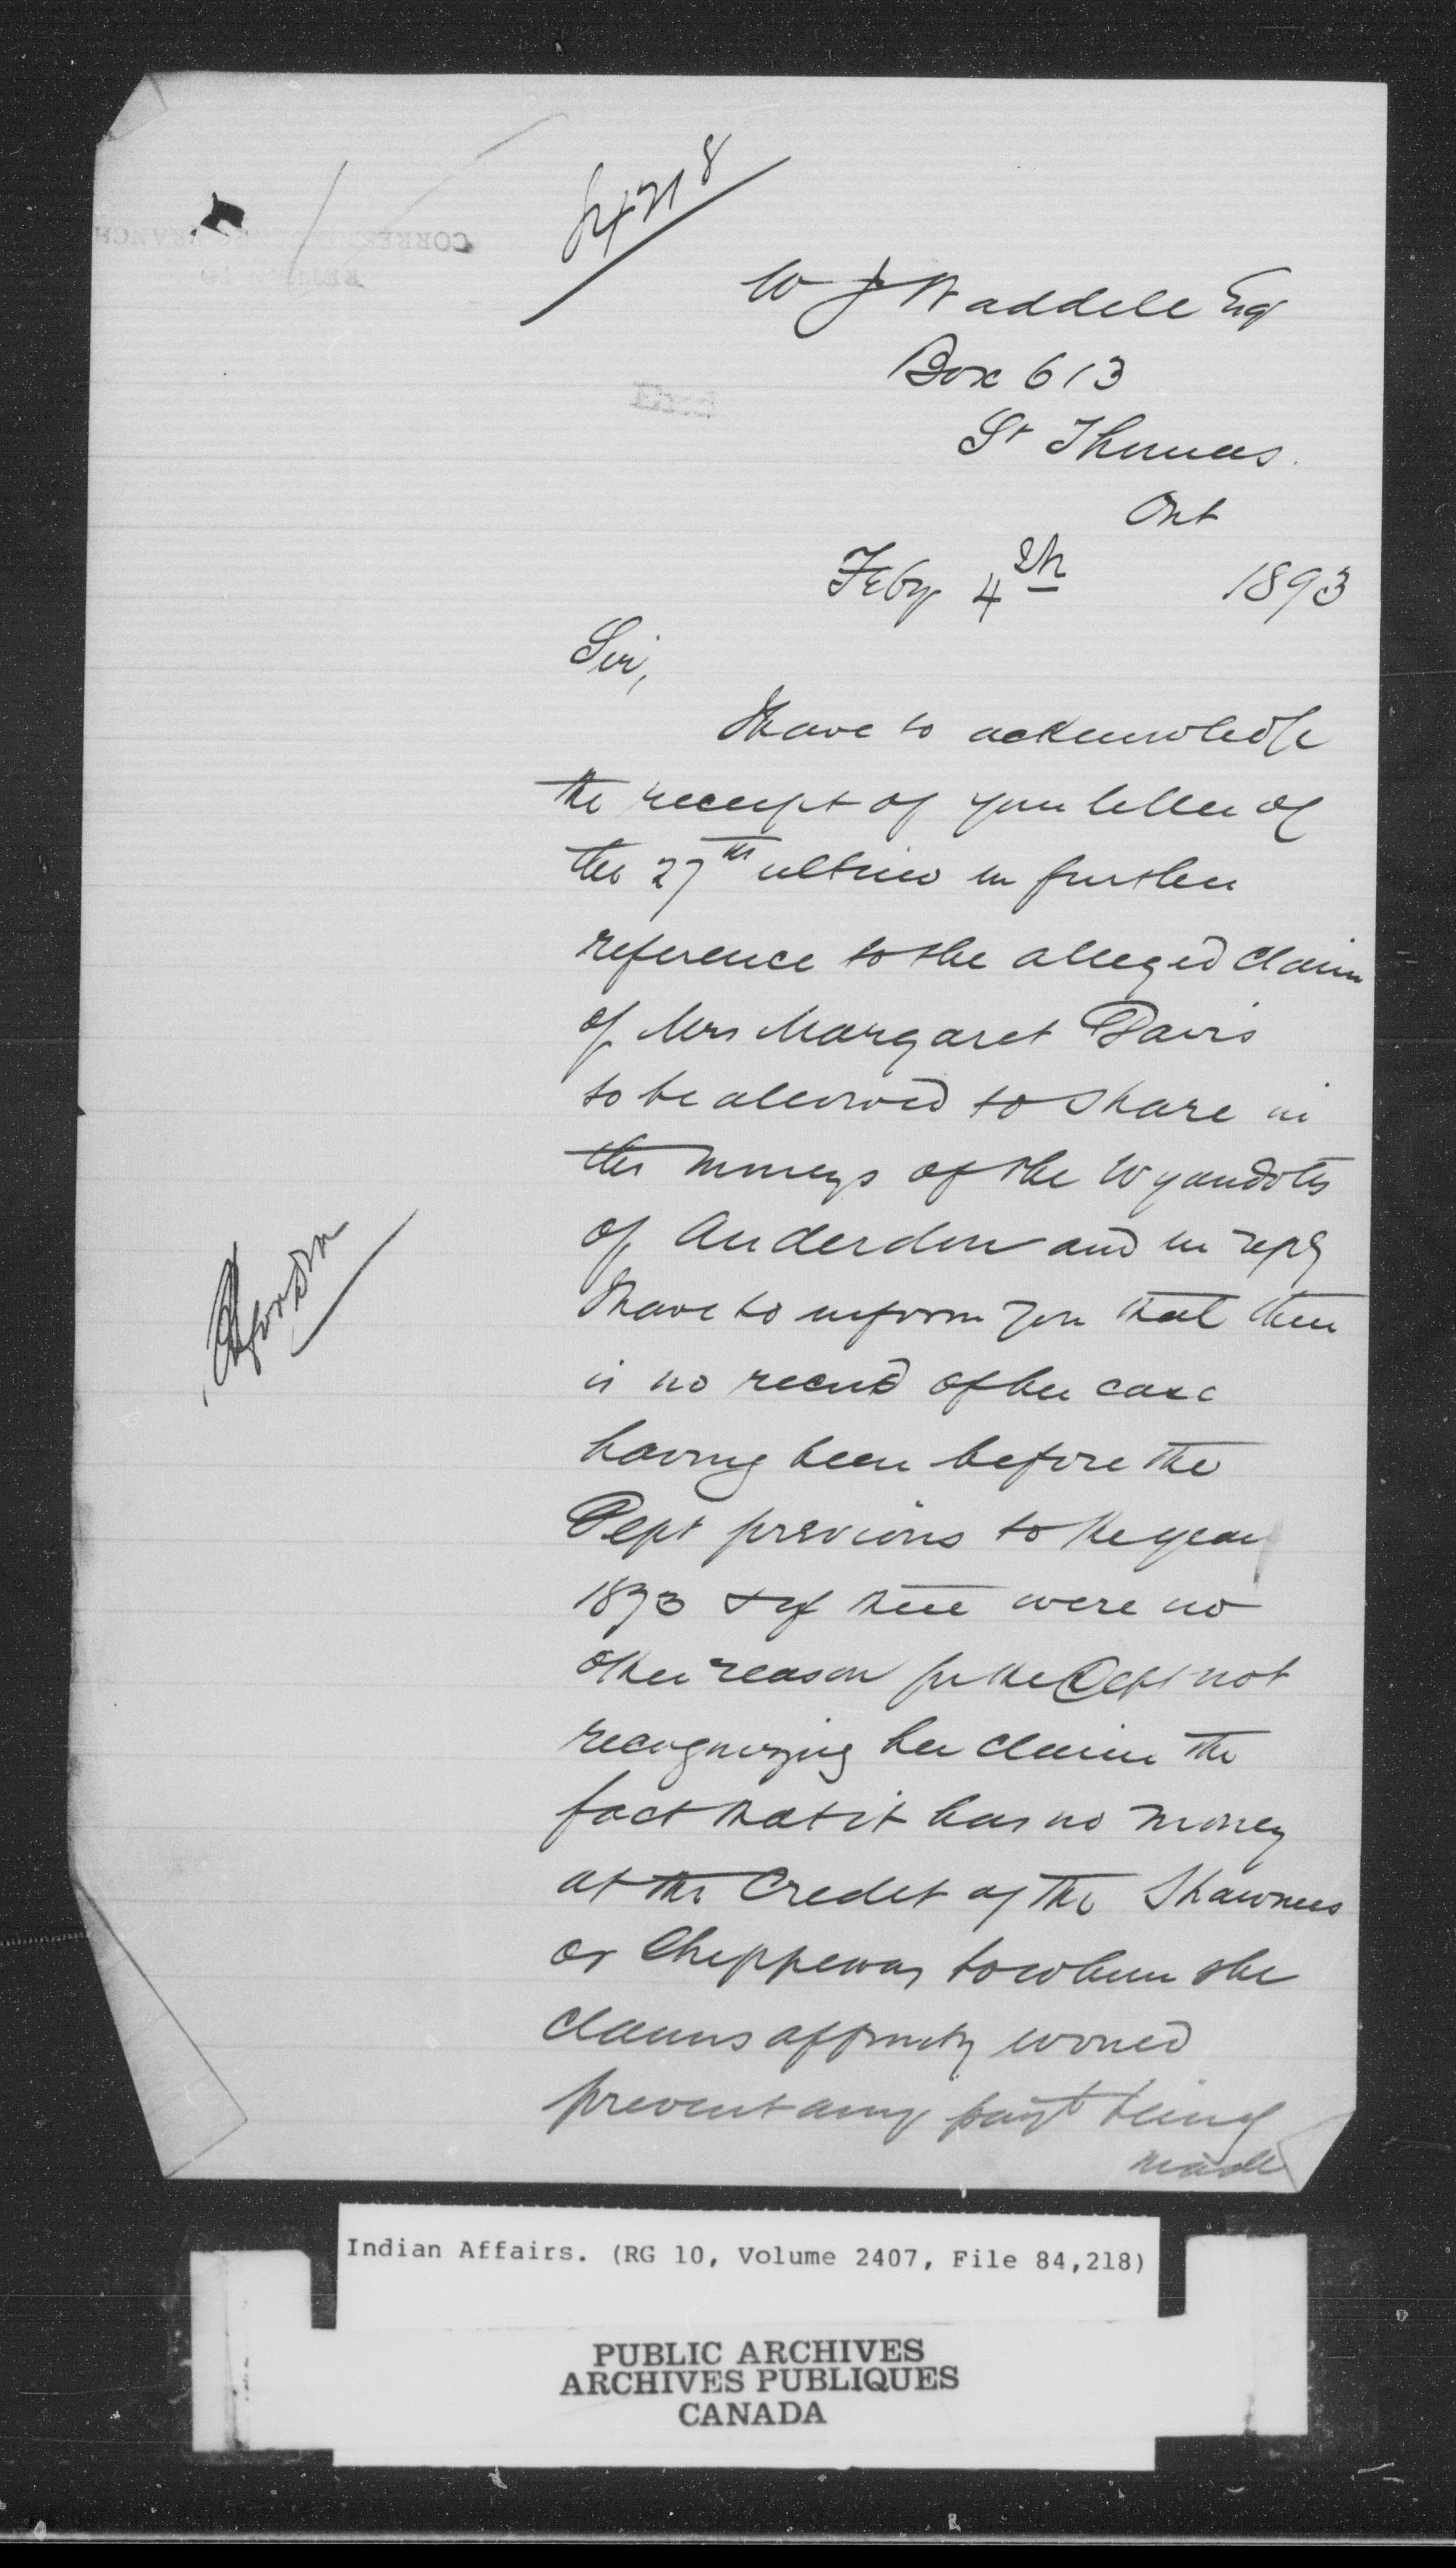 84218
W J Waddell Esq
Box 613
St Thomas.
Ont
Feby 4th 1893
Sir,
I have to acknowledge
the receipt of your letter of
the 27th ultimo in further
reference to the alleged claim
of Mrs Margaret Davis
to be allowed to share in
the moneys of the Wyandotts
of Anderdon and in reply
I have to inform you that there
is no record of her case
having been before the
Dept previous to the year
1873 & if there were no
other reason for the Dept not
recognizing her claim the
fact that it has no money
at the Credit of the Shawnees
or Chippewas to whom she
claims affinity would
prevent any payt being
made
RETURN TO
CORRESPONDENCE BRANCH
Indian Affairs. (RG 10, Volume 2407, File 84,218)
PUBLIC ARCHIVES
ARCHIVES PUBLIQUES
CANADA